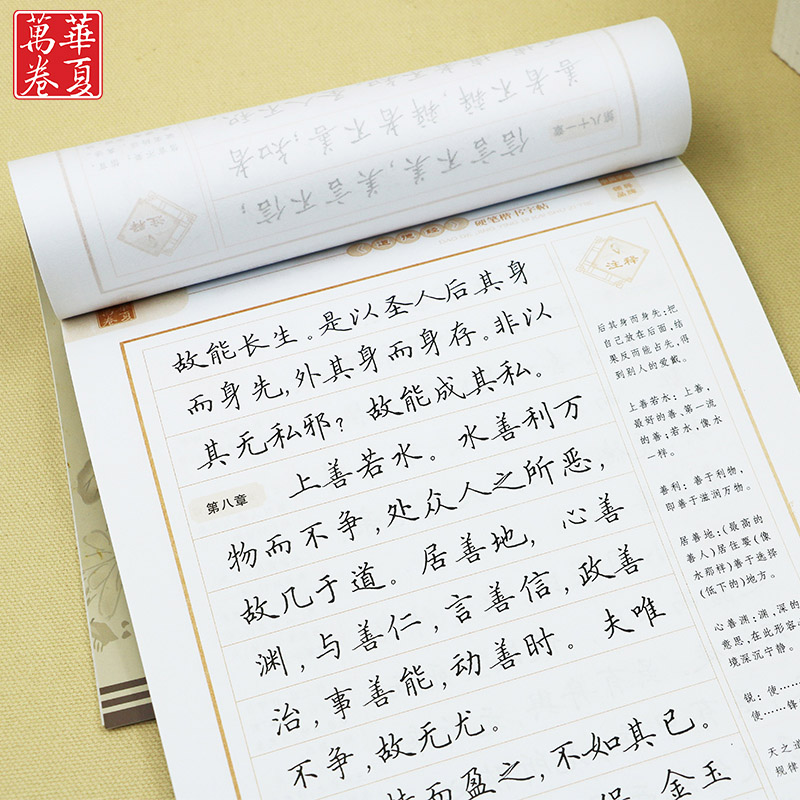 華夏
萬卷
第八十一章
信言不美,美言不信;
善者不辩,辩者不善;知者
注释
道德经
硬笔楷书字帖
故能长生。是以圣人后其身
而身先,外其身而身存。非以
其无私邪?故能成其私。
第八章
上善若水。水善利万
物而不争,处众人之所恶,
故几于道。居善地,心善
渊,与善仁,言善信,政善
治,事善能,动善时。夫唯
不争,故无尤。
而盈之,不如其已。
金玉
注释
后其身而身先:把
自己放在后面,结
果反而能占先,得
到别人的爱戴。
上善若水:上善,
最好的善、第一流
的善;若水,像水
一样。
善利:善于利物,
即善于滋润万物。
居善地:(最高的
善人)居住要(像
水那样)善于选择
(低下的)地方。
心善渊:渊,深的
意思,在此形容
境深沉宁静。
锐:使……
使……锋
天之道
规律